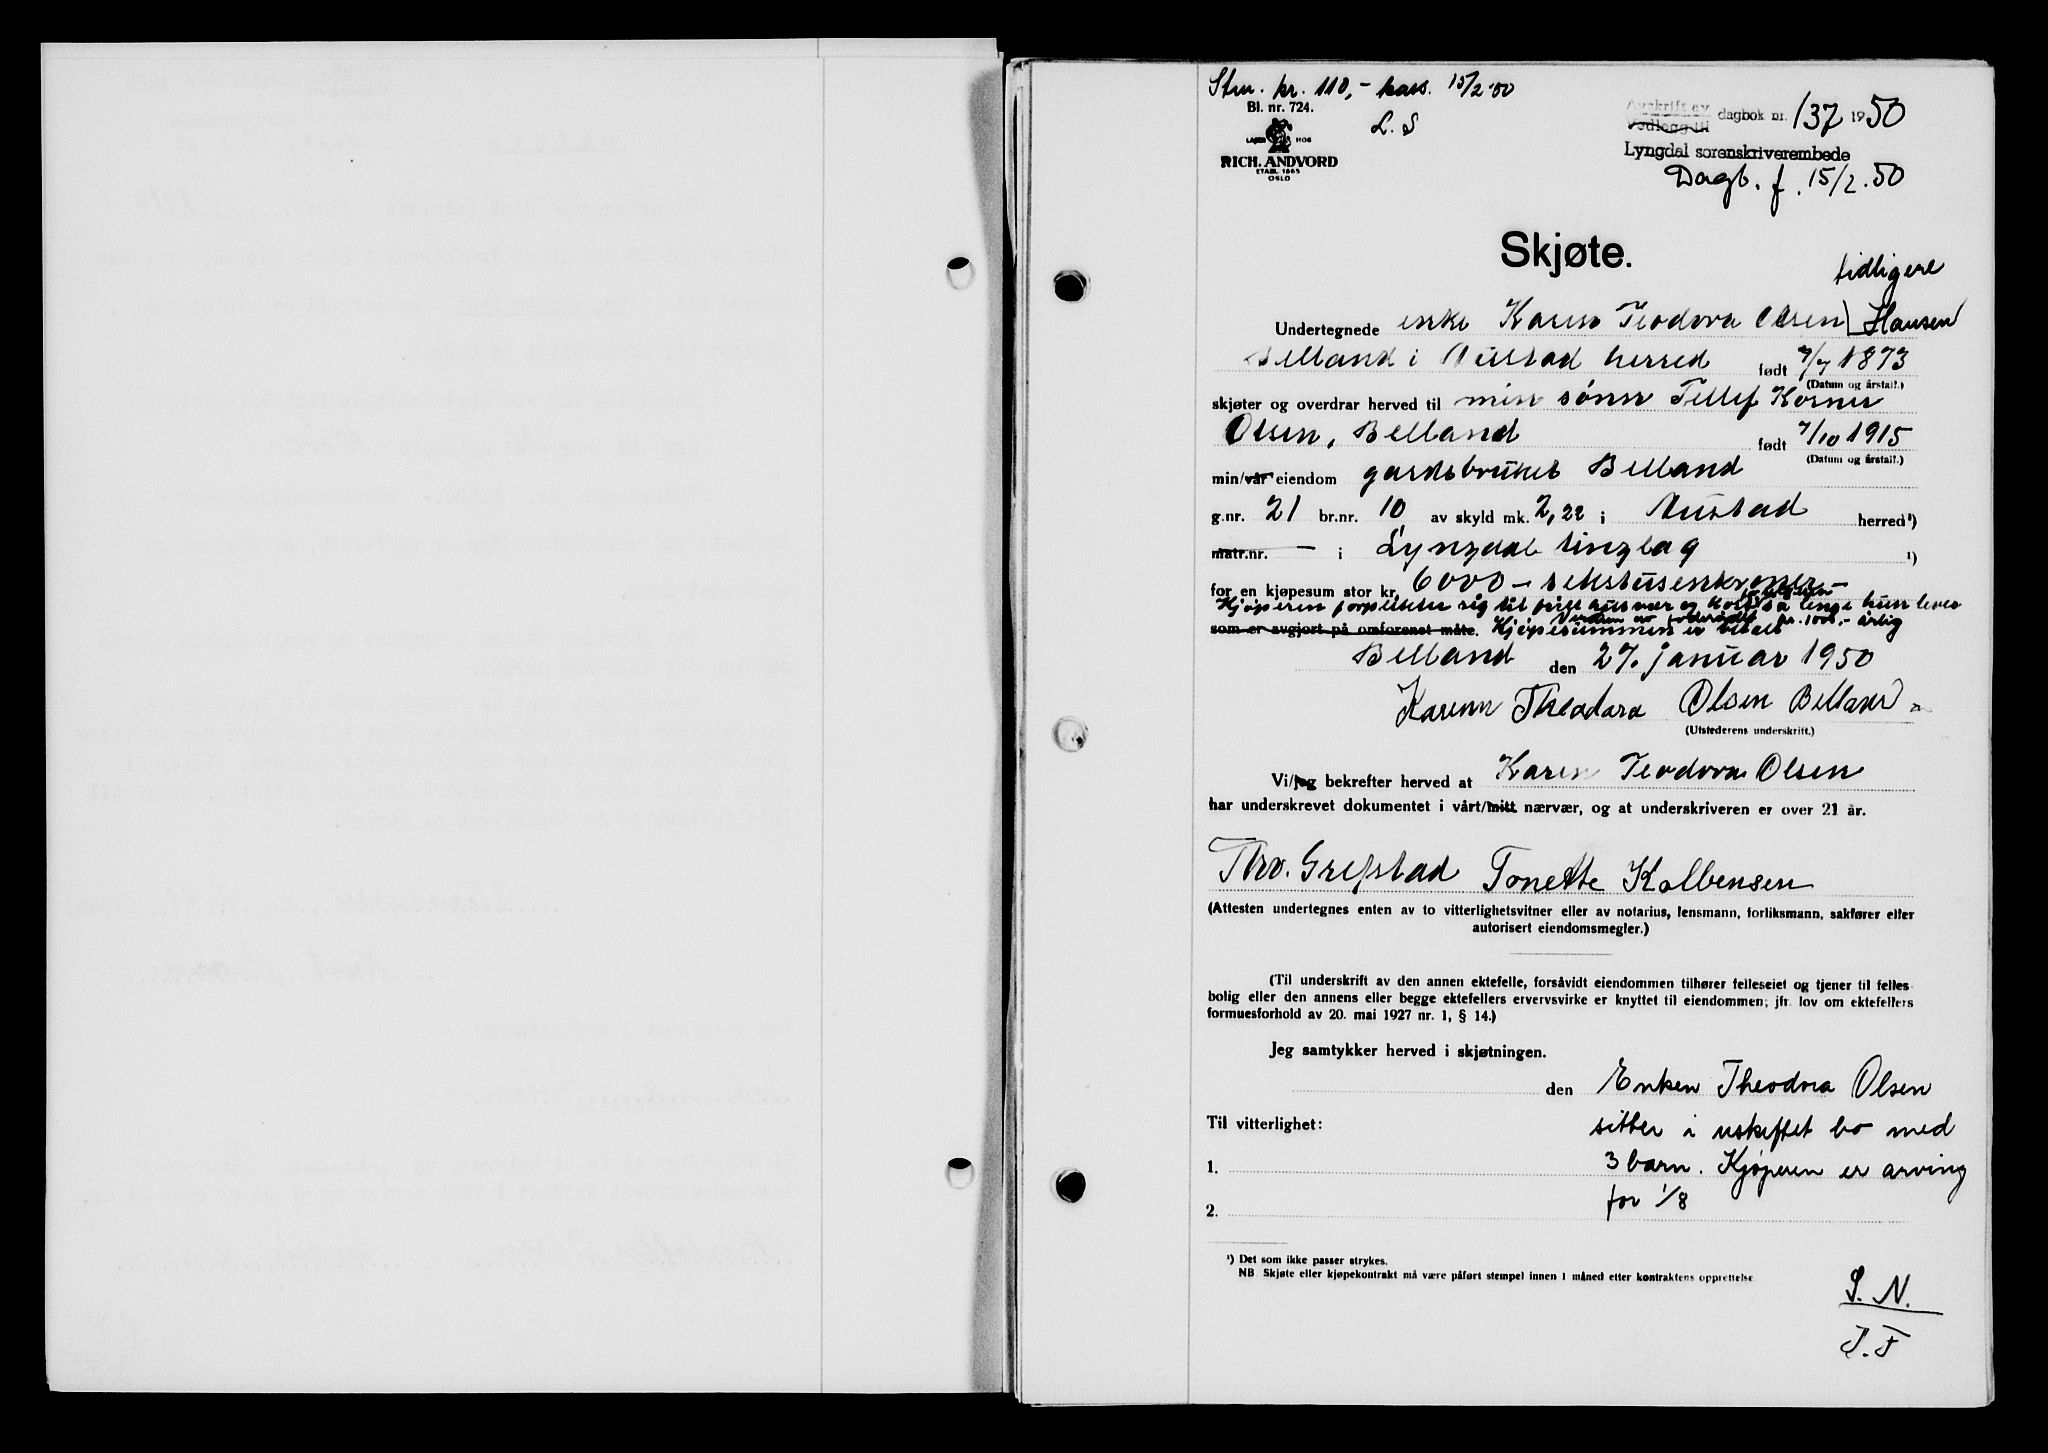 Stm. kr. 110,- kass. 15/2 50
Bl. nr. 724.
L. S
LAGER HOS
RICH. ANDVORD
ETABL. 1865
OSLO
Avskrift av
Vedlegg til dagbok nr. 137 1950
Lyngdal sorenskriverembede
Dagb. f. 15/2. 50
Skjøte.
tidligere
Undertegnede enke Karen Teodora Olsen Hansen
Belland i Austad herred født 7/7 1873
(Datum og årstall.)
skjøter og overdrar herved til min sønn Tellef Korner
Olsen, Belland født 7/10 1915
(Datum og årstall.)
min/vår eiendom gardsbruket Belland
g.nr. 21 br.nr. 10 av skyld mk. 2,22 i Austad herred¹)
matr.nr. — i Lyngdal tinglag ¹)
for en kjøpesum stor kr. 6000 - sekstusenkroner -
Kjøperen forplikter sig til fritt husvær og kost så lenge hun lever
Verdien av føderådet kr. 1000,- årlig
som er avgjort på omforenet måte. Kjøpesummen er betalt
Belland den 27. januar 1950
Karenn Theodora Olsen Belland
(Utstederens underskrift.)
Vi/jeg bekrefter herved at Karen Teodora Olsen
har underskrevet dokumentet i vårt/mitt nærvær, og at underskriveren er over 21 år.
Thv. Grefstad Tonette Kolbensen
(Attesten undertegnes enten av to vitterlighetsvitner eller av notarius, lensmann, forliksmann, sakfører eller
autorisert eiendomsmegler.)
(Til underskrift av den annen ektefelle, forsåvidt eiendommen tilhører felleseiet og tjener til felles
bolig eller den annens eller begge ektefellers ervervsvirke er knyttet til eiendommen; jfr. lov om ektefellers
formuesforhold av 20. mai 1927 nr. 1, § 14.)
Jeg samtykker herved i skjøtningen.
den Enken Theodora Olsen
Til vitterlighet: sitter i uskiftet bo med
1. 3 barn. Kjøperen er arving
2. for 1/8
¹) Det som ikke passer strykes.
NB. Skjøte eller kjøpekontrakt må være påført stempel innen 1 måned etter kontraktens opprettelse
S. N.
J. F